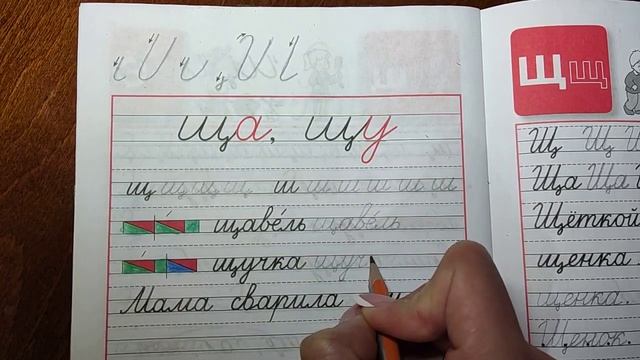 ща, щу
щ щ щ щ щ ш ш ш ш ш ш ш
щаве́ль щавель
щучка щуч
Мама сварила
Щ щ
Щ Щ
Ща Ща
Щёткой
щенка
щенка.
Щенок.